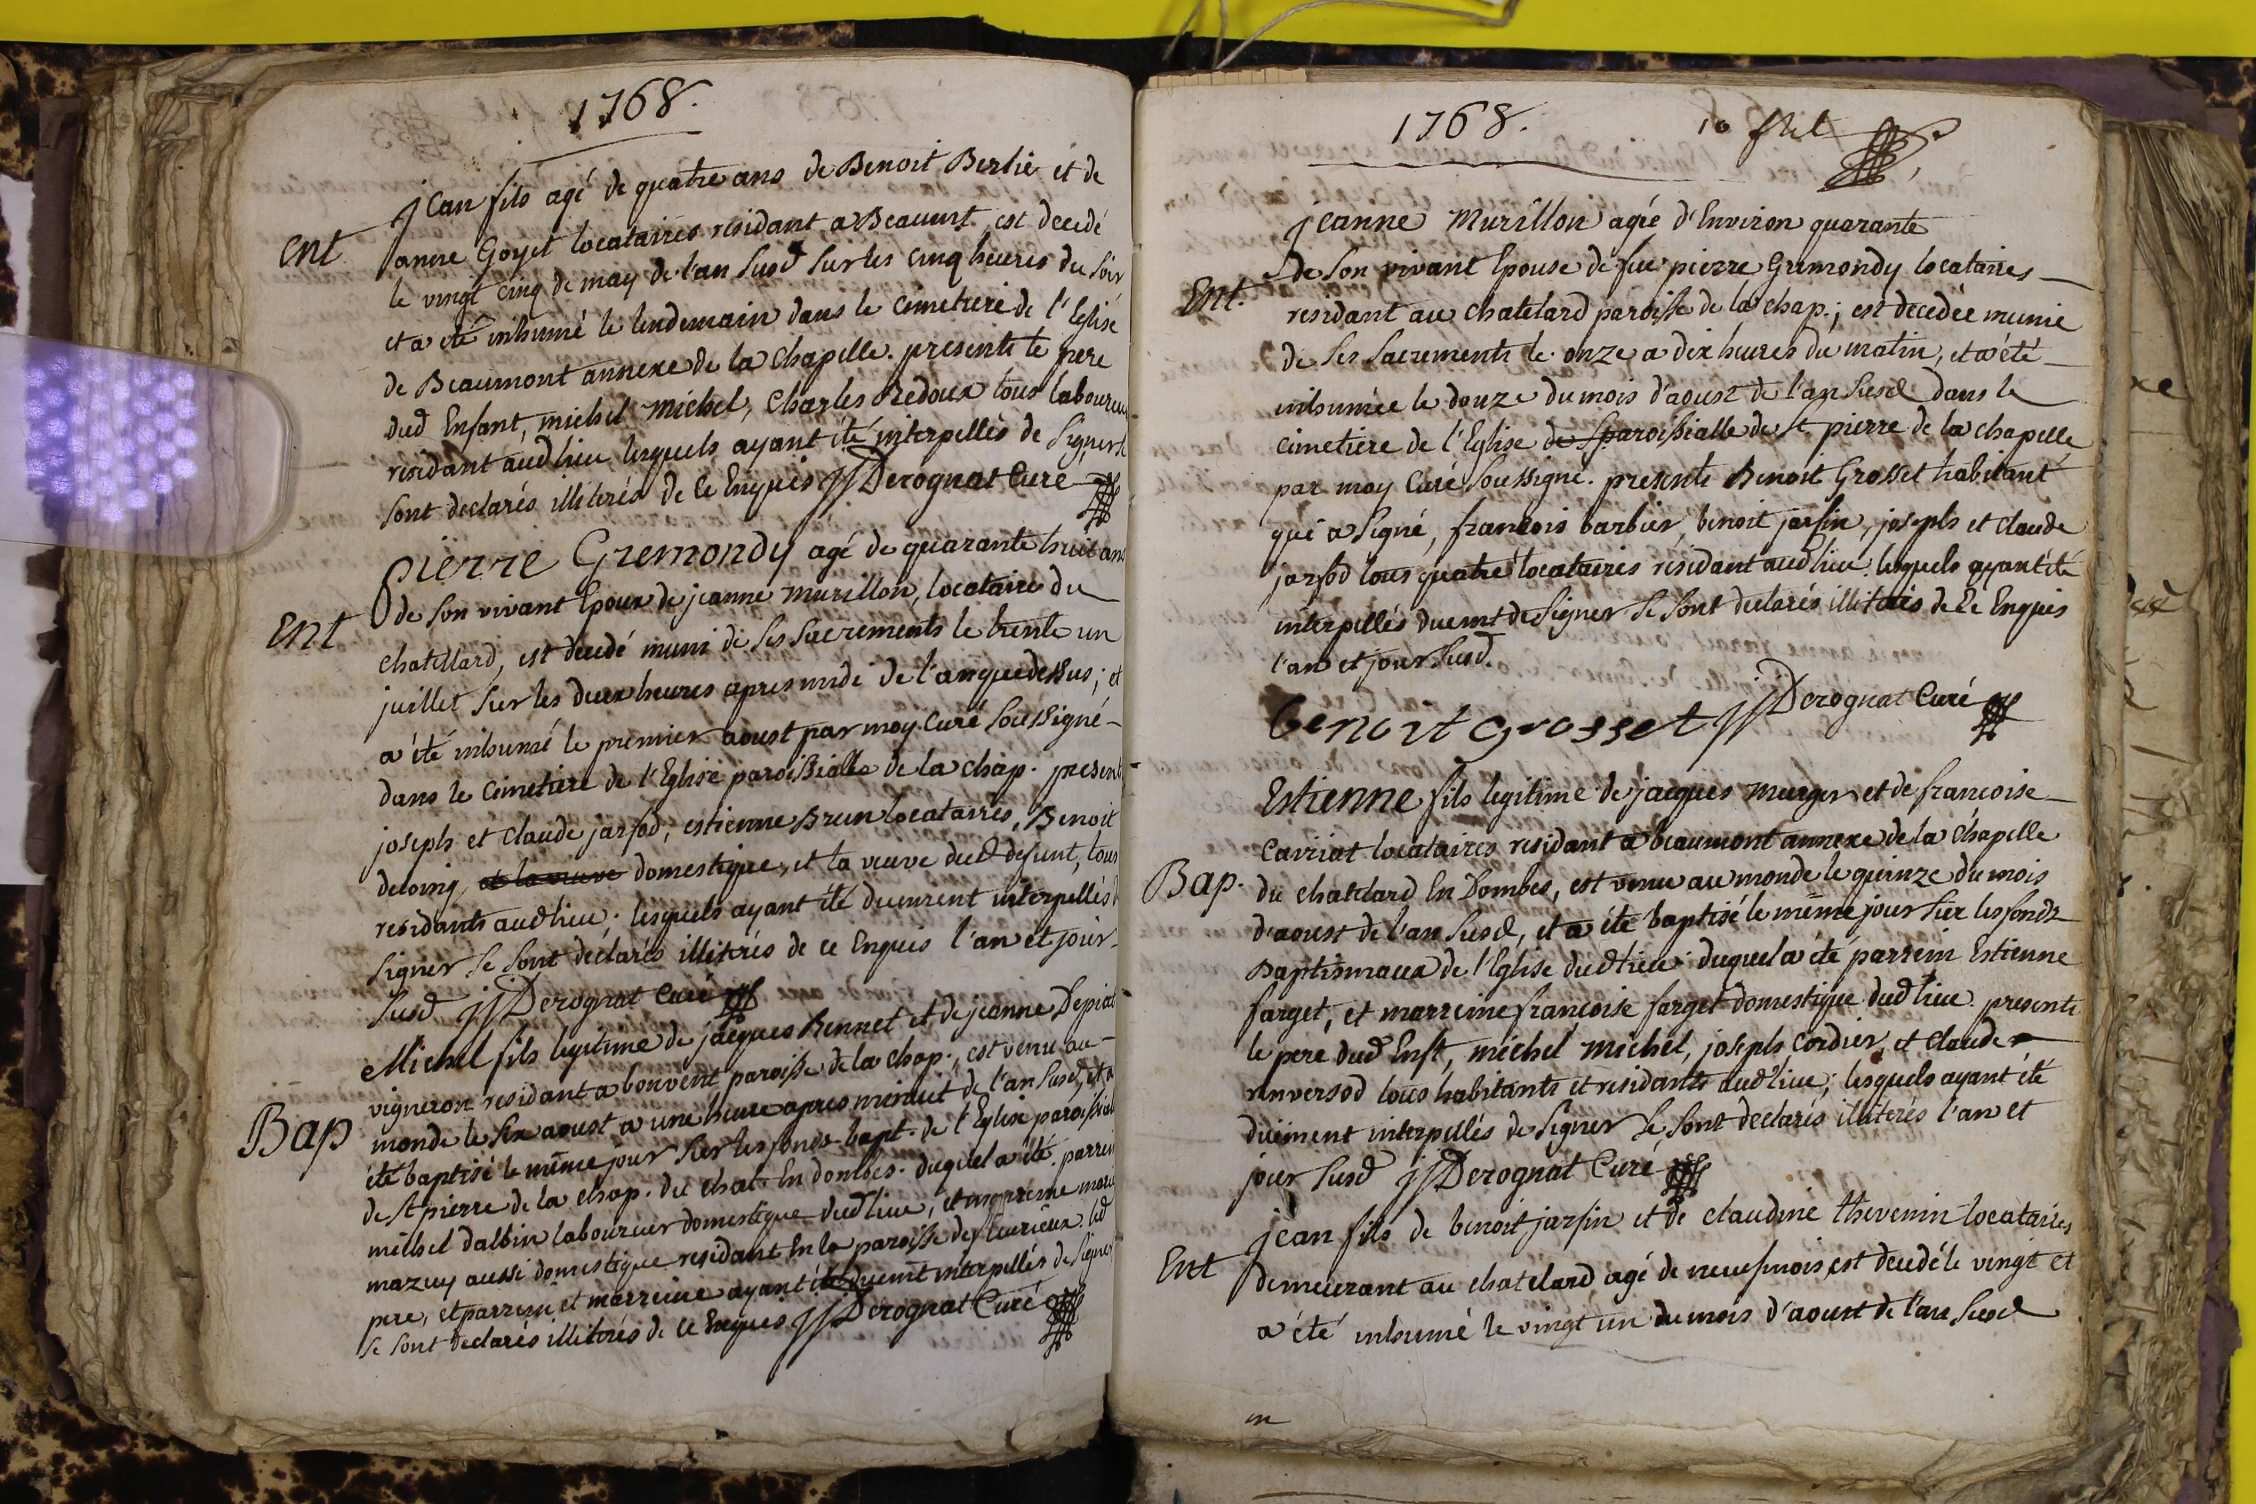 1768.
jean fils agé de quatre ans de Benoit Berlie et de
Ent
anne Goyet locataires residant a Beaumt, est decedé
le vingt cinq de may de l'an Susd Sur les cinq heures du Soir
et a été inhumé le lendemain dans le cimetiere de l'Eglise
de Beaumont annexe de la chapelle. presents le pere
dud Enfant, michel michel, Charles Redoux tous laboureurs
residant aud lieu lesquels ayant été interpellés de Signer se
Sont declarés illiterés de ce Enquis jj Derognat Curé
pierre Gremondy agé de quarante huit ans
Ent
de Son vivant Epoux de jeanne murillon, locataire du
chatellard, est decedé muni de Ses Sacrements le trente un
juillet Sur les deux heures apres midi de l'an que dessus; et
a été inhumé le premier aoust par moy Curé Soussigné
dans le Cimetiere de l'Eglise paroissialle de la chap. presents
joseph et Claude jarfod, estienne Brun locataires, Benoit
deloing, et la veuve domestique, et la veuve dud defunt, tous
residants aud lieu; lesquels ayant été duement interpellés
Signer Se Sont declarés illiterés de ce Enquis l'an et jour
Susd jj Derognat Curé
Michel fils legitime de jacques Bennet et de jeanne Depiat
vigneron residant a bouvent paroisse de la chap., est venu au
Bap
monde le Six aoust a une heure apres minuit de l'an Susd, et a
été baptisé le même jour Sur les fonds bapt. de l'Eglise paroissialle
de St pierre de la chap. du chat. En dombes. duquel a été parrein
michel dalbin laboureur domestique dud lieu, et marreine marie
mazuy aussi domestique residant En la paroisse de fleurieux. led
pere, et parrein et marreine ayant été duemt interpellés de Signer
Se Sont declarés illiterés de ce Enquis jj Derognat Curé
1768.
10
jeanne Murillon agée d'Environ quarante
de Son vivant Epouse de feu pierre Gremondy locataires
Ent.
residant au chatelard paroisse de la chap.; est decedée munie
de Ses Sacrements le onze a dix heures du matin, et a été
inhumée le douze du mois d'aoust de l'an Susd dans le
cimetiere de l'Eglise de S paroissialle de St pierre de la chapelle
par moy Curé Soussigné. presents Benoit Grosset habitant
qui a Signé, francois barbier, benoit jarfin, joseph et Claude
jarfod tous quatre locataires residant aud lieu. lesquels ayant été
interpellés duemt de Signer Se Sont declarés illiterés de ce Enquis
l'an et jour Susd.
benoit grosset jj Derognat Curé
Estienne fils legitime de jacques murger et de francoise
Carriat locataires residant a beaumont annexe de la chapelle
Bap.
du chatelard En Dombes, est venu au monde le quinze du mois
d'aoust de l'an Susd, et a été baptisé le même jour Sur les fonds
Baptismaux de l'Eglise dud lieu. duquel a été parrein Estienne
farget, et marreine françoise farget domestique dud lieu. presents
le pere dud Enft, michel michel, joseph cordier, et Claude
renversod tous habitants et residants aud lieu; lesquels ayant été
duëment interpellés de Signer Se Sont declarés illiterés l'an et
jour Susd jj Derognat Curé
jean fils de benoit jarfin et de claudine thevenin locataires
Ent
demeurant au chatelard agé de neuf mois est decedé le vingt et
a été inhumé le vingt un du mois d'aoust de l'an Susd